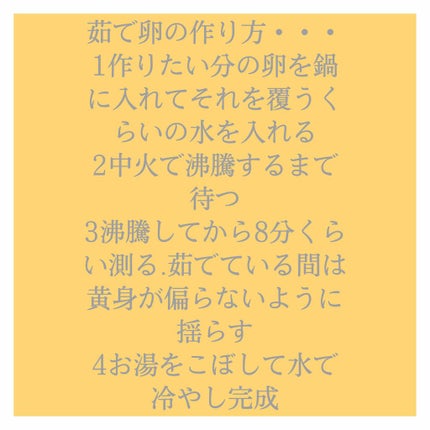 茹で卵の作り方・・・
1作りたい分の卵を鍋
に入れてそれを覆うく
らいの水を入れる
2中火で沸騰するまで
待つ
3沸騰してから8分くら
い測る.茹でている間は
黄身が偏らないように
揺らす
4お湯をこぼして水で
冷やし完成